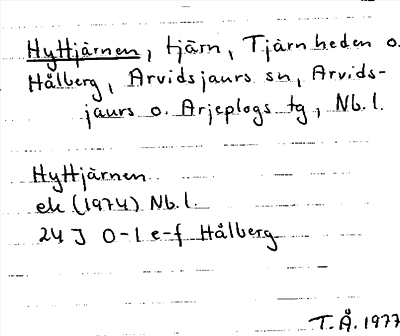 Hyttjärnen, tjärn, Tjärnheden o.
Hålberg, Arvidsjaurs sn, Arvids-
jaurs o. Arjeplogs tg, Nb.l.
Hyttjärnen
ek (1974) Nb.l.
24 J 0-1 e-f Hålberg
T.Å. 1977